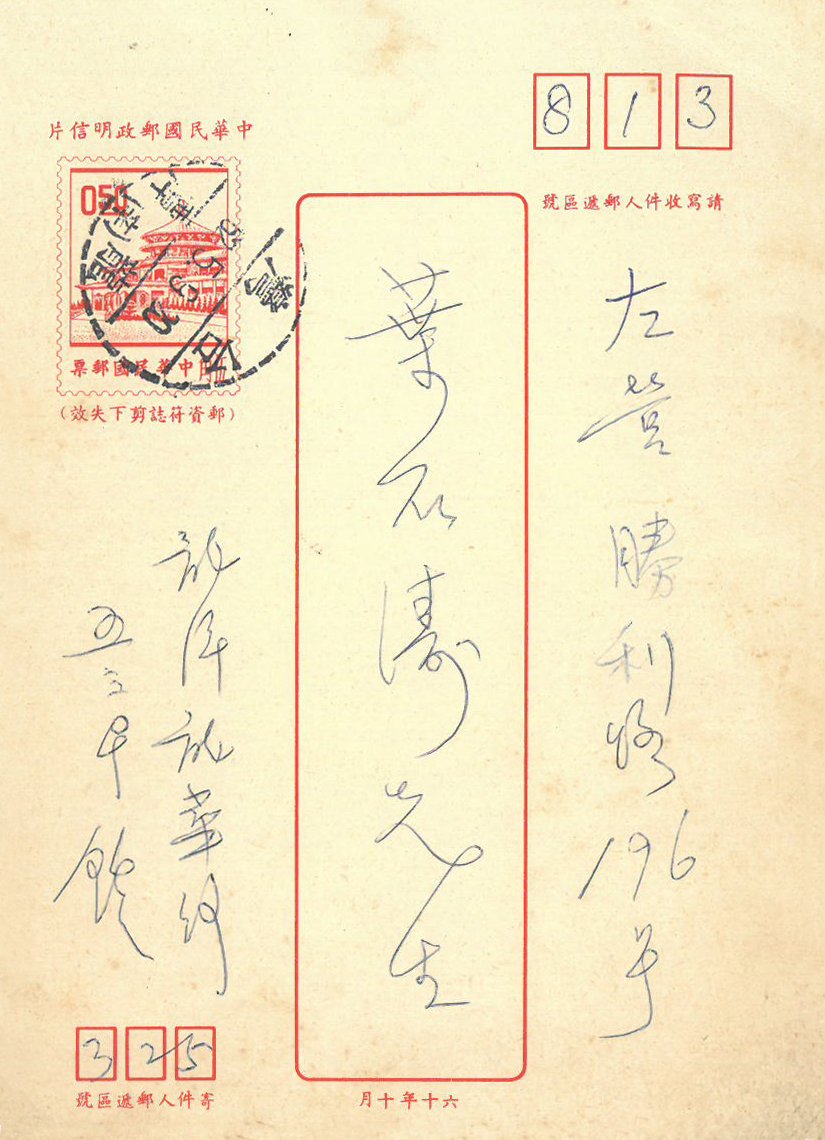 中華民國郵政明信片
050
中華民國郵票
(郵資符誌剪下失效)
813
請寫收件人郵遞區號
左營勝利路196号
葉石濤先生
龍潭龍華路
五三号 鍾
325
寄件人郵遞區號
六十年十月